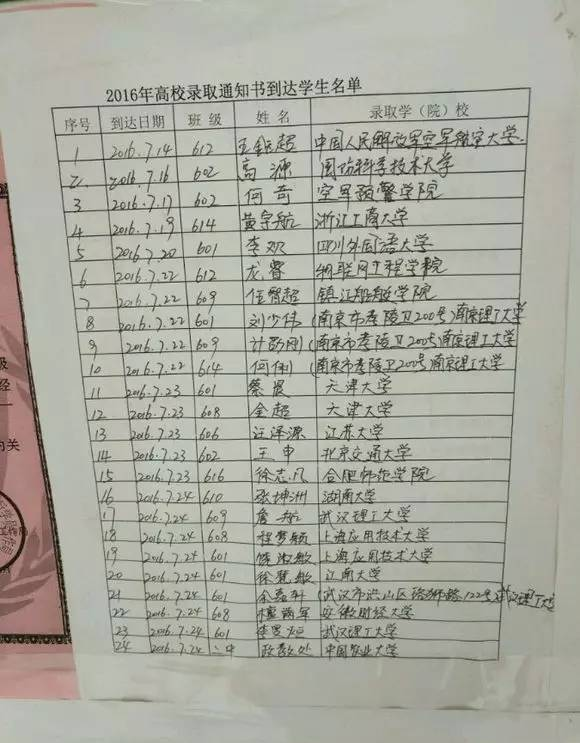 2016年高校录取通知书到达学生名单
序号 到达日期 班级 姓名 录取学(院)校
1 2016.7.14 612 王毅超 中国人民解放军空军航空大学
2 2016.7.16 602 高源 国防科学技术大学
3 2016.7.17 602 何奇 空军预警学院
4 2016.7.19 614 黄宇航 浙江工商大学
5 2016.7.20 601 李欢 四川外国语大学
6 2016.7.22 612 龙睿 物联网工程学院
7 2016.7.22 609 任智超 镇江船艇学院
8 2016.7.22 601 刘少伟 (南京市孝陵卫200号)南京理工大学
9 2016.7.22 609 计 刚 (南京市孝陵卫200号)南京理工大学
10 2016.7.22 614 何俐 (南京市孝陵卫200号)南京理工大学
11 2016.7.23 601 蔡晨 天津大学
12 2016.7.23 608 金超 天津大学
13 2016.7.23 606 汪泽源 江苏大学
14 2016.7.23 602 王申 北京交通大学
15 2016.7.23 616 徐志凡 合肥师范学院
16 2016.7.24 610 张坤洲 湖南大学
17 2016.7.24 609 詹 武汉理工大学
18 2016.7.24 608 程梦颖 上海应用技术大学
19 2016.7.24 601 饶淑敏 上海应用技术大学
20 2016.7.24 601 徐慧敏 江南大学
21 2016.7.24 601 余 (武汉市洪山区珞狮路122号)武汉理工大学
22 2016.7.24 608 檀 军 安徽财经大学
23 2016.7.24 601 李 武汉理工大学
24 2016.7.24 二中 政教处 中国农业大学